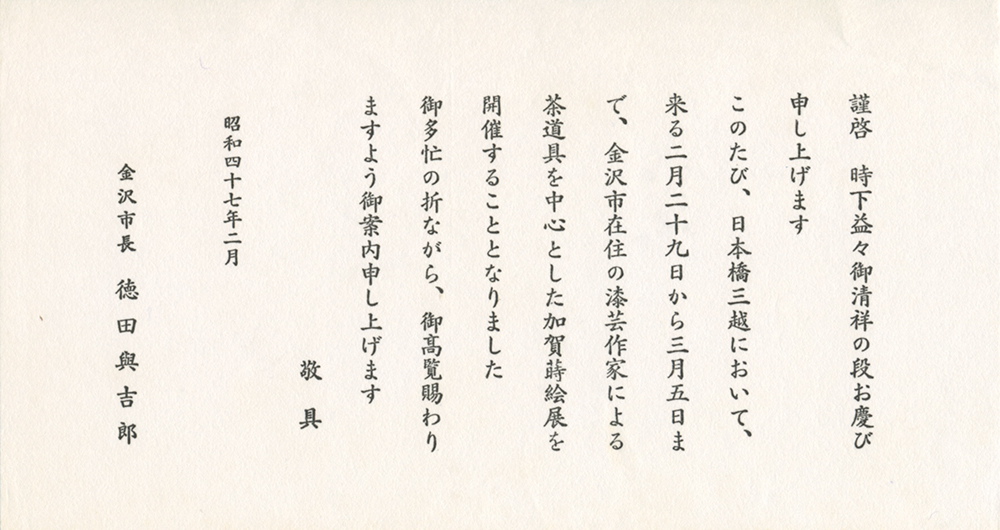 謹啓　時下益々御清祥の段お慶び
申し上げます
このたび、日本橋三越において、
来る二月二十九日から三月五日ま
で、金沢市在住の漆芸作家による
茶道具を中心とした加賀蒔絵展を
開催することとなりました
御多忙の折ながら、御高覧賜わり
ますよう御案内申し上げます
敬具
昭和四十七年二月
金沢市長　徳田與吉郎